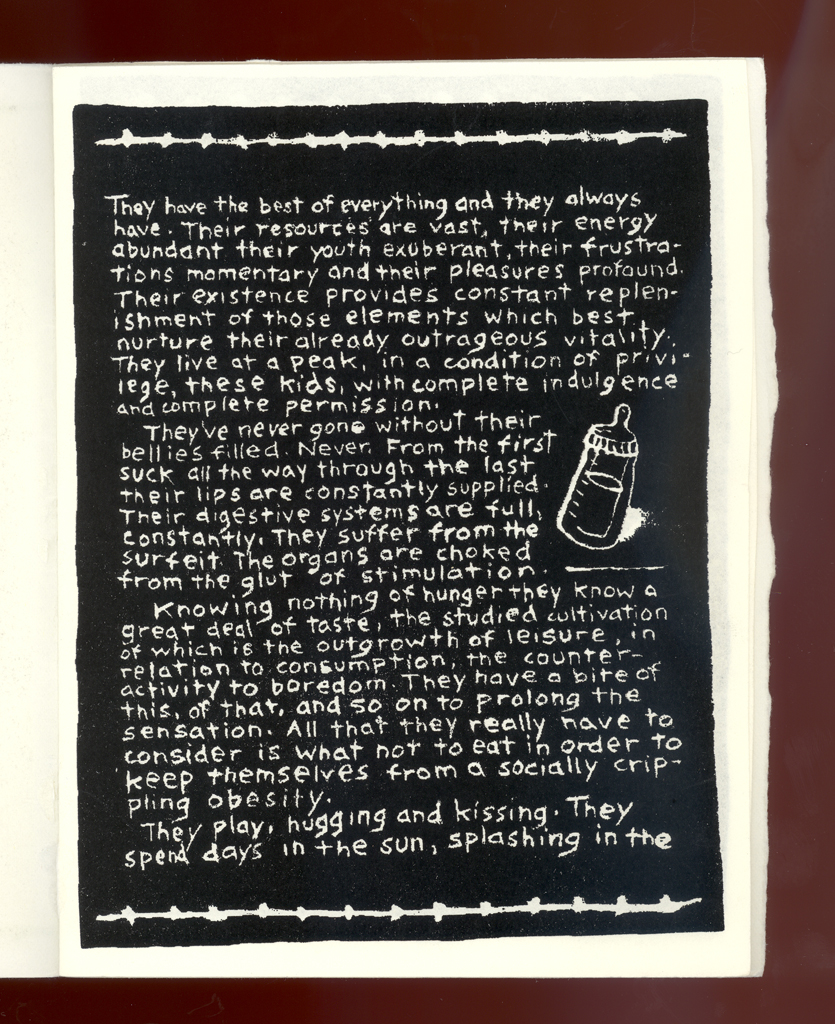 They have the best of everything and they always
have. Their resources are vast, their energy
abundant their youth exuberant, their frustra-
tions momentary and their pleasures profound.
Their existence provides constant replen-
ishment of those elements which best
nurture their already outrageous vitality.
They live at a peak, in a condition of privi-
lege, these kids, with complete indulgence
and complete permission.
They've never gone without their
bellies filled. Never. From the first
suck all the way through the last
their lips are constantly supplied.
Their digestive systems are full,
constantly. They suffer from the
surfeit. The organs are choked
from the glut of stimulation.
Knowing nothing of hunger they know a
great deal of taste, the studied cultivation
of which is the outgrowth of leisure, in
relation to consumption, the counter-
activity to boredom. They have a bite of
this, of that, and so on to prolong the
sensation. All that they really have to
consider is what not to eat in order to
keep themselves from a socially crip-
pling obesity.
They play, hugging and kissing. They
spend days in the sun, splashing in the